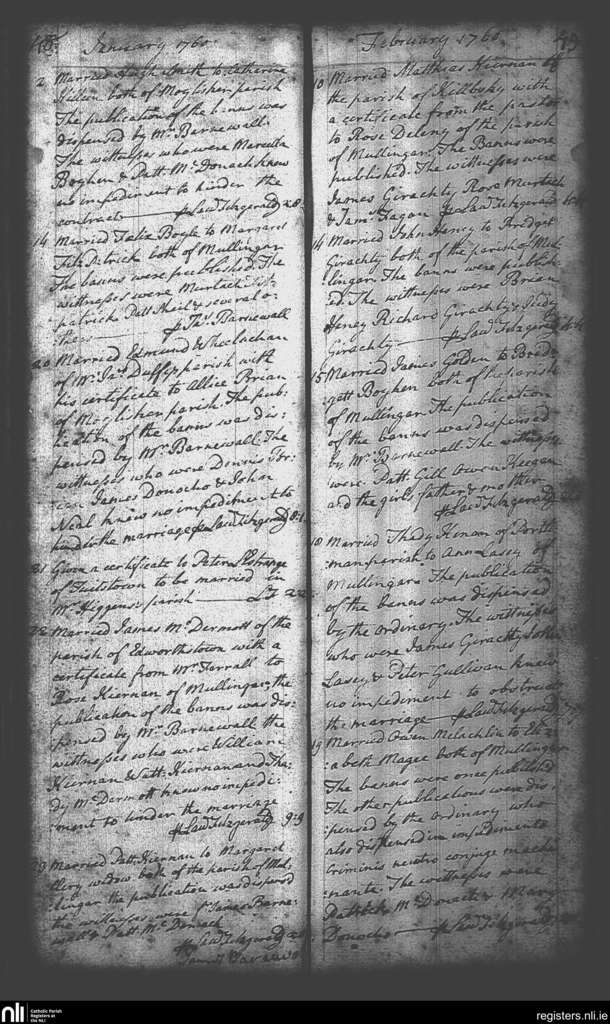 January 1760
2 Married Hugh Smith to Catherine
Killen both of Moglisher parish
The publication of the banns was
dispensed by Mr. Barnewall.
The wittnesses who were Marcella
Boyhen & Patt Mc. Donach knew
no impediment to hinder the
contract Law: Fitzgerald
14 Married Felix Boyle to Margaret
both of Mullingar
The banns were published. The
wittnesses were Murtach Fitz
patrick Patt & several o:
thers Barnewall
20 Married Edmund
of Mr. Jas. Duffys parish with
his certificate to Allice Brian
of Moglisher parish. The pub:
lication of the banns was dis:
pensed by Mr. Barnewall. The
wittnesses who were Dennis
James Donocho & John
Neal knew no impediment to
hinder the marriage Law: Fitzgerald
21 Given a certificate to Peter
of to be married in
Mr. Higgins: parish L:F
22 Married James Mc. Dermott of the
parish of Edworthstown with a
certificate from Mr. Farrall to
Rose Kiernan of Mullingar, the
publication of the banns was dis:
pensed by Mr. Barnewall the
wittnesses who were William
Kiernan & Patt: Kiernan and Tha:
dy Mc. Dermott knew no impedi:
ment to hinder the marriage
Law: Fitzgerald
Married Patt: Kiernan to Margaret
widow both of the parish of Mul:
lingar the publication was dispensed
the wittnesses were James Barne:
wall & Patt: Mc. Donach
Law: Fitzgerald
February 1760 49
10 Married Matthias Kiernan of
the parish of with
a certificate from the pastor
to Rose Deleny of the parish
of Mullingar. The Banns were
published. The wittnesses were
James Giraghty Rose Murtach
& Fagan Law: Fitzgerald
14 Married John Heney to Bridget
Giraghty both of the parish of Mul:
lingar. The banns were publish
ed. The wittnesses were Brian
Heney Richard Giraghty & Judy
Giraghty Law: Fitzgerald
15 Married James Golden to Brid:
gett Boyhen both of the parish
of Mullingar. The publication
of the banns was dispensed
by Mr. Barnewall. The wittnesses
were Patt: Gill Owen Keegan
and the girls father & mother
Law: Fitzgerald
18 Married Thady of Portlo
man parish to Ann Lasey of
Mullingar. The publication
of the banns was dispensed
by the ordinary. The wittnesses
who were James Giraghty John
Lasey & Peter Gullivan knew
no impediment to obstruct
the marriage Law: Fitzgerald
19 Married Owen Melachlin to Eliz:
abeth Magee both of Mullingar
The banns were once published
The other publications were dis:
pensed by the ordinary who
also dispensed in impedimento
criminis neutro conjuge machi
nante. The wittnesses were
Patrick Mc. Donach & Mary
Donocho Law: Fitzgerald
nli Catholic Parish
Registers at
the NLI
registers.nli.ie